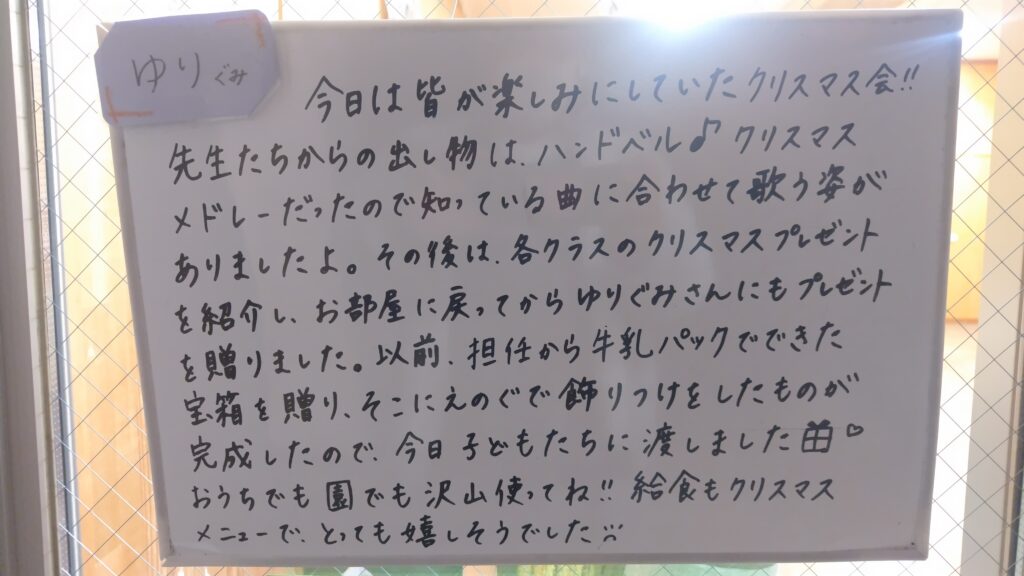 ゆりぐみ
今日は皆が楽しみにしていたクリスマス会!!
先生たちからの出し物は、ハンドベル♪クリスマス
メドレーだったので知っている曲に合わせて歌う姿が
ありましたよ。その後は、各クラスのクリスマスプレゼント
を紹介し、お部屋に戻ってからゆりぐみさんにもプレゼント
を贈りました。以前、担任から牛乳パックでできた
宝箱を贈り、そこにえのぐで飾りつけをしたものが
完成したので、今日子どもたちに渡しました🎁♡
おうちでも園でも沢山使ってね!! 給食もクリスマス
メニューで、とっても嬉しそうでした